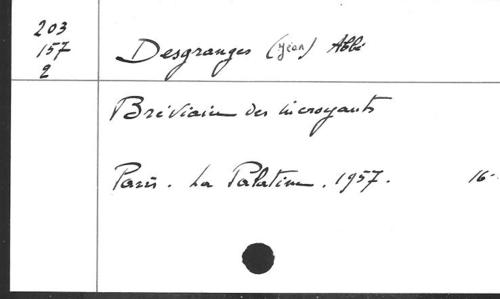 203
157
2
Desgranges (Jean) Abbé
Bréviaire des incroyants
Paris. La Palatine. 1957. 16-